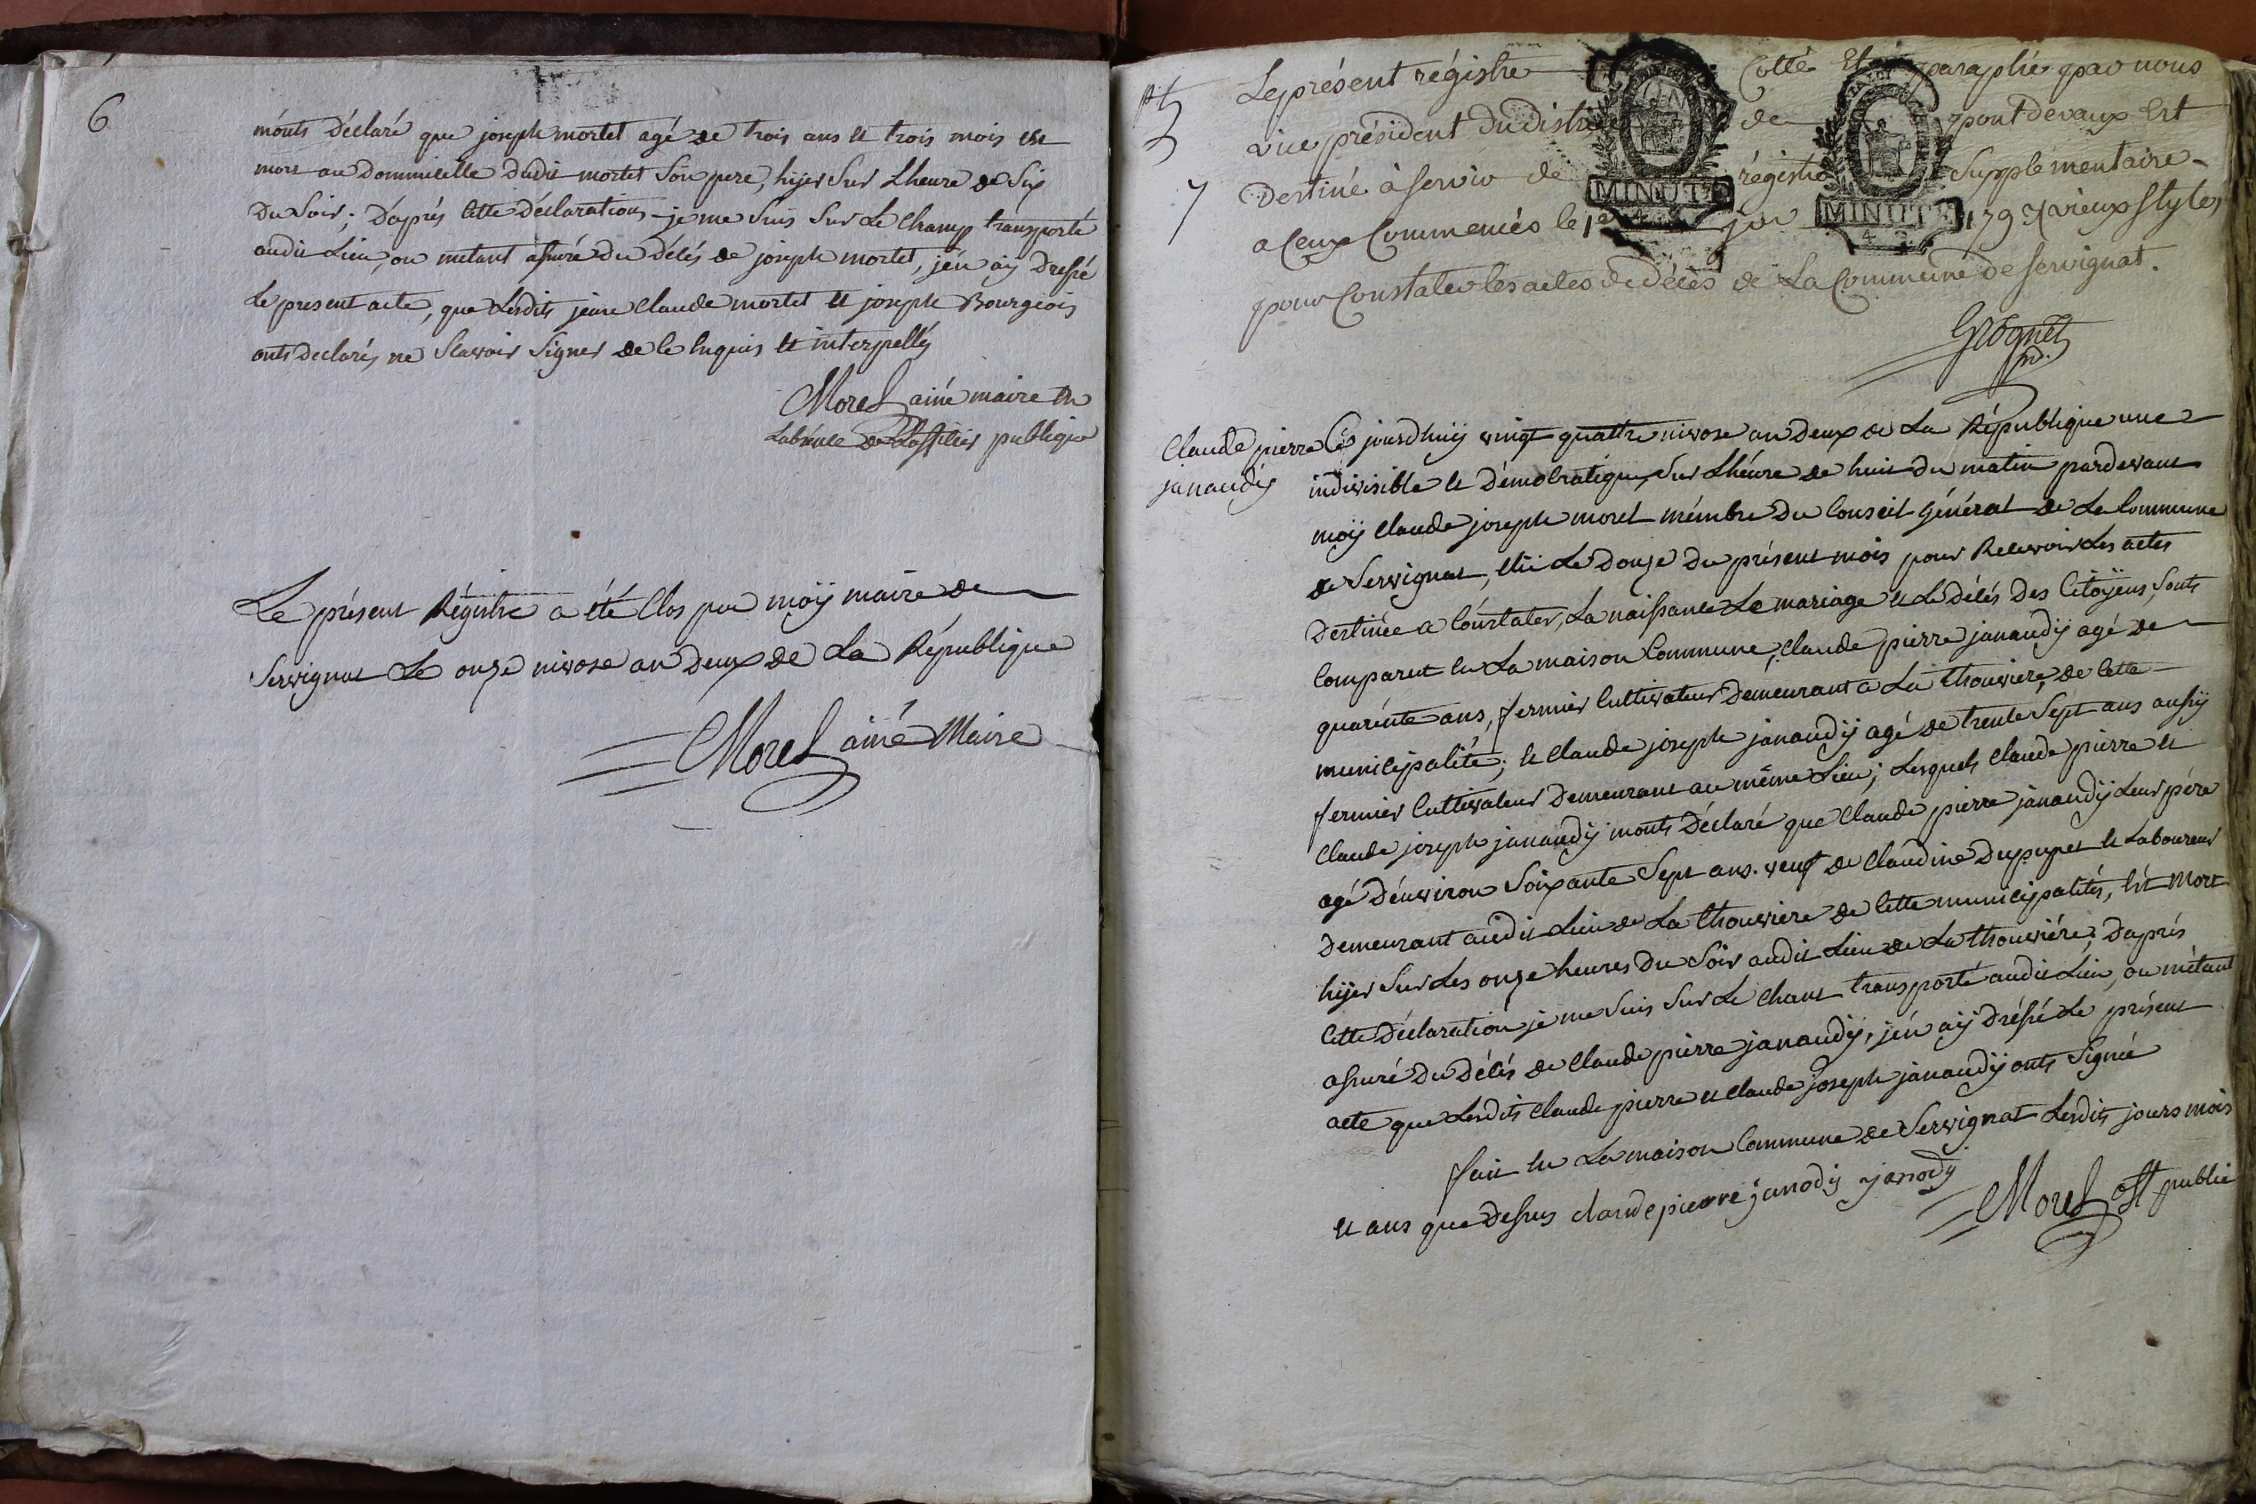 6
m'onts déclaré que joseph mortel agé de trois ans et trois mois est
mort au dommicille dudit mortel son pere, hijer sur Lheure de Six
du soir; Daprés Cette déclaration je me suis sur Le Champ transporté
audit Lieu, ou metant assuré du délés de joseph mortel, jén aÿ dressé
Le present acte, que Lesdits jean claude mortel et joseph Bourgiois
onts declarés ne Scavoir signer de ce Enquis et interpellés
Morel ainé maire En
Labscence de Lofficier publique
Le présent Régistre a été Clos par moÿ maire de
Servignat Le onze nivose an deux de La République
Morel ainé Maire
7
Le présent régistre Cotté Et paraphé par nous
vice président du district de pont devaux Est
Destiné à servir de régistre Supplémentaire
a Ceux Commencés le 1er jer 1793 vieux Styles
pour Constater les actes de décès de La Commune de servignat.
Grognet
MINUTE
MINUTE
Claude pierre
janaudÿ
Ce jourdhuÿ vingt quattre nivose an deux de La République une
indivisible et Démocratique, sur Lhéure de huit du matin pardevant
moÿ Claude joseph morel mémbre du Conseil général de La Commune
de Servignat, élü Le douze du présent mois pour Recevoir Les actes
Destinée a Constater, La naissance Le mariage et Le délés des Citoÿens, sonts
Comparut En La maison Commune, Claude pierre janaudÿ agé de
quarénte ans, fermier Cultivateur demeurant a La thouviere, de Cette
municipalité; et Claude joseph janaudÿ agé de trente Sept ans aussÿ
fermier Cultivateur demeurant au même Lieu; Lesquels Claude pierre et
Claude joseph janaudÿ monts déclaré que Claude pierre janaudÿ Leur pére
agé dénviron Soixante Sept ans. veuf de Claudine Dupupet et Laboureur
demeurant audit Lieu de La thouviere de Cette municipalités, Est Mort
hijer sur Les onze heures du soir audit Lieu de La thouviére; daprés
Cette déclaration je me suis sur Le chant transporté audit Lieu, ou métant
assuré du délés de Claude pierre janaudÿ, jén aÿ dréssé Le présent
acte que Lesdits Claude pierre et Claude joseph janaudÿ onts Signée
fait En La maison Commune de Servignat Lesdits jours mois
et ans que dessus claude pierre janodÿ janodÿ
Morel off public